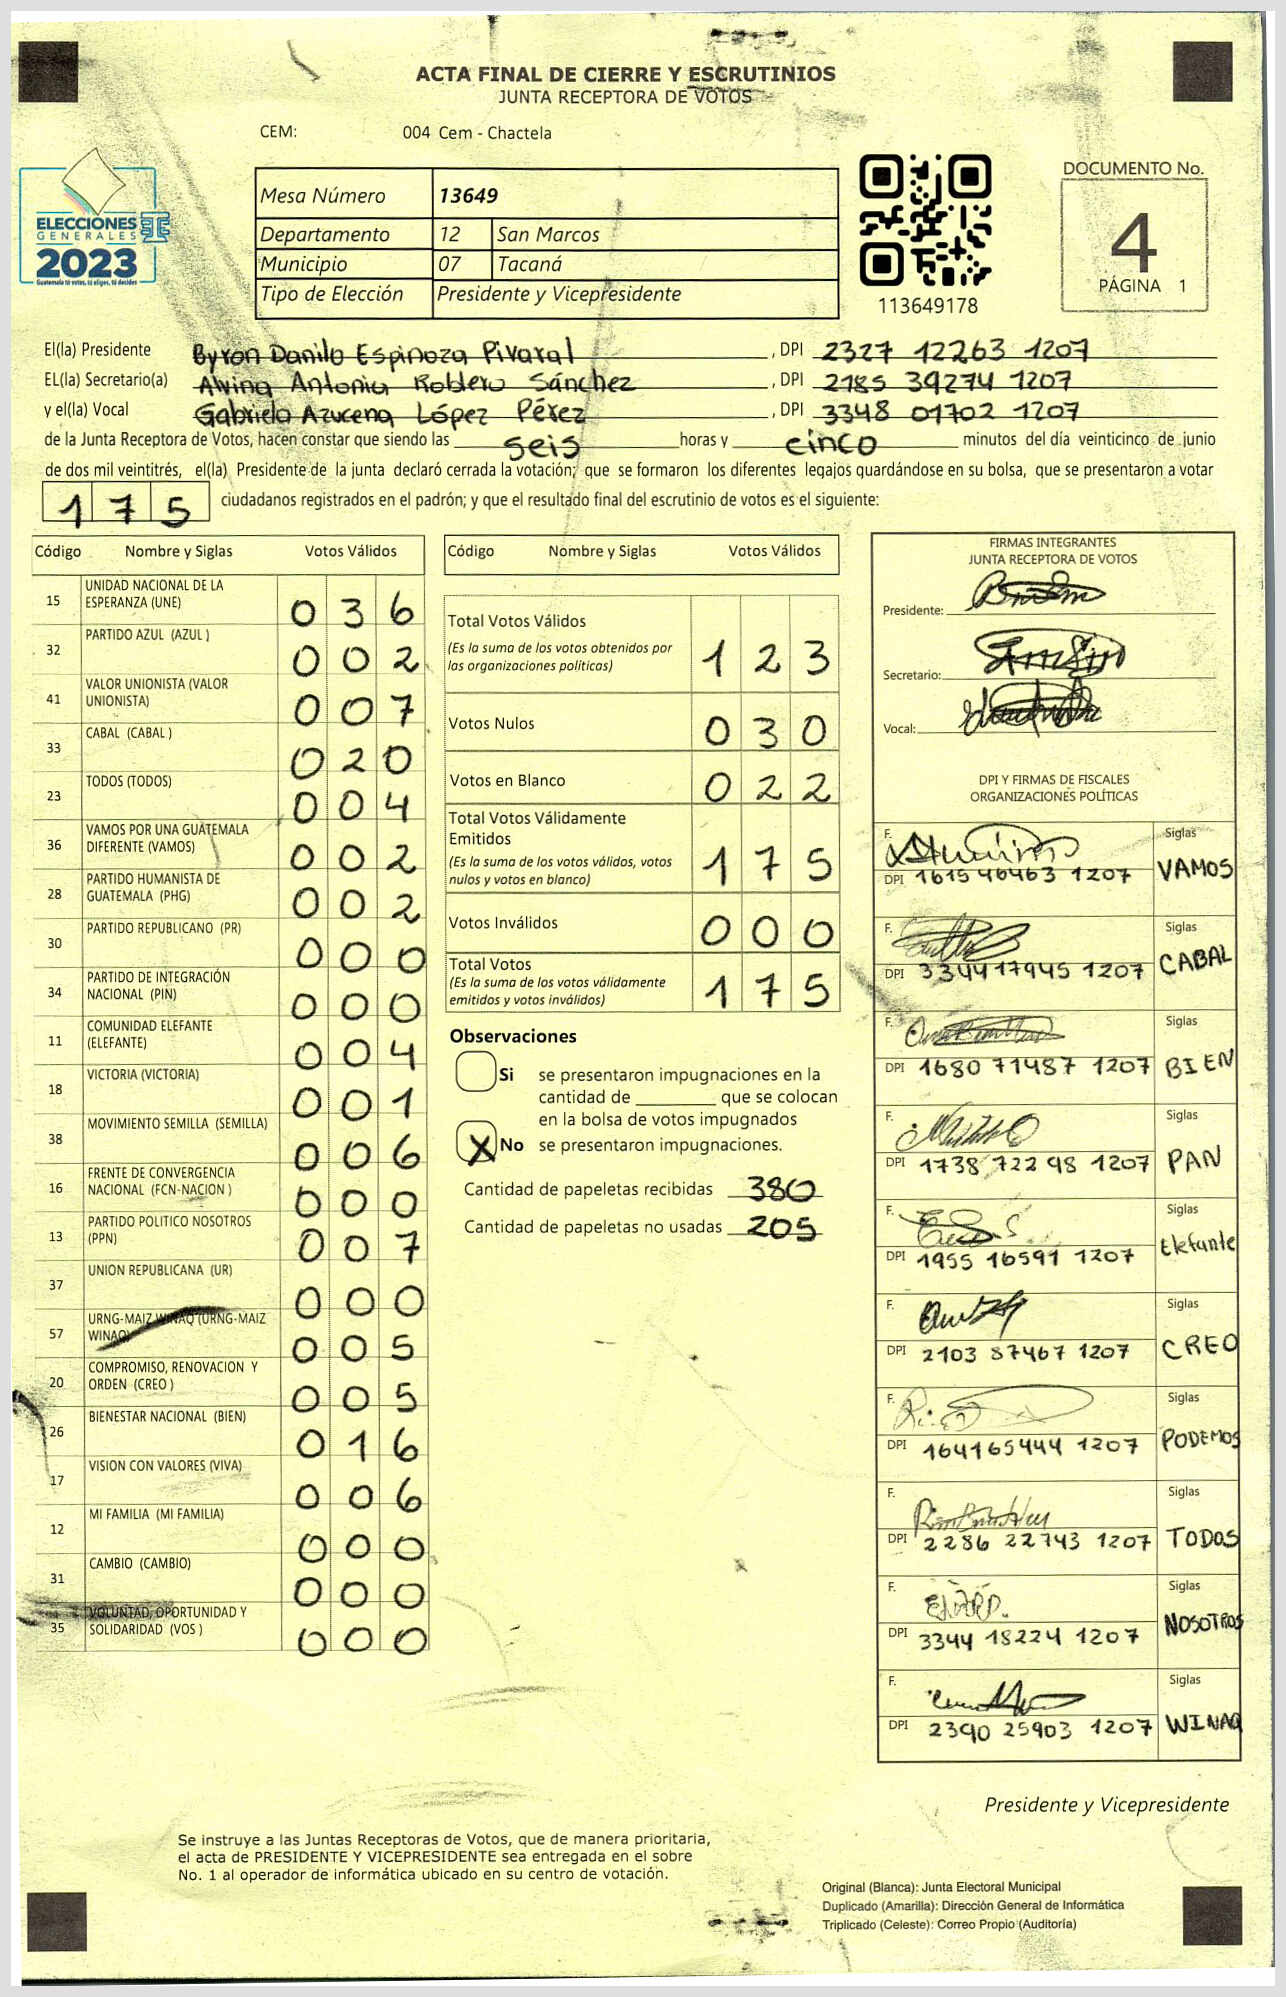 ACTA FINAL DE CIERRE Y ESCRUTINIOS
JUNTA RECEPTORA DE VOTOS
CEM: 004 Cem - Chactela
ELECCIONES
GENERALES
2023
Guatemala tú votas, tú eliges, tú decides
Mesa Número 13649
Departamento 12 San Marcos
Municipio 07 Tacaná
Tipo de Elección Presidente y Vicepresidente
113649178
DOCUMENTO No.
4
PÁGINA 1
El(la) Presidente Byron Danilo Espinoza Pivaral , DPI 2327 12263 1207
EL(la) Secretario(a) Alvina Antonia Roblero Sánchez , DPI 2185 39274 1207
y el(la) Vocal Gabriela Azucena López Pérez , DPI 3348 01702 1207
de la Junta Receptora de Votos, hacen constar que siendo las seis horas y cinco minutos del día veinticinco de junio
de dos mil veintitrés, el(la) Presidente de la junta declaró cerrada la votación; que se formaron los diferentes legajos quardándose en su bolsa, que se presentaron a votar
175 ciudadanos registrados en el padrón; y que el resultado final del escrutinio de votos es el siguiente:
Código Nombre y Siglas Votos Válidos
15 UNIDAD NACIONAL DE LA ESPERANZA (UNE) 036
32 PARTIDO AZUL (AZUL ) 002
41 VALOR UNIONISTA (VALOR UNIONISTA) 007
33 CABAL (CABAL ) 020
23 TODOS (TODOS) 004
36 VAMOS POR UNA GUATEMALA DIFERENTE (VAMOS) 002
28 PARTIDO HUMANISTA DE GUATEMALA (PHG) 002
30 PARTIDO REPUBLICANO (PR) 000
34 PARTIDO DE INTEGRACIÓN NACIONAL (PIN) 000
11 COMUNIDAD ELEFANTE (ELEFANTE) 004
18 VICTORIA (VICTORIA) 001
38 MOVIMIENTO SEMILLA (SEMILLA) 006
16 FRENTE DE CONVERGENCIA NACIONAL (FCN-NACION ) 000
13 PARTIDO POLITICO NOSOTROS (PPN) 007
37 UNION REPUBLICANA (UR) 000
57 URNG-MAIZ WINAQ (URNG-MAIZ WINAQ) 005
20 COMPROMISO, RENOVACION Y ORDEN (CREO ) 005
26 BIENESTAR NACIONAL (BIEN) 016
17 VISION CON VALORES (VIVA) 006
12 MI FAMILIA (MI FAMILIA) 000
31 CAMBIO (CAMBIO) 000
35 VOLUNTAD, OPORTUNIDAD Y SOLIDARIDAD (VOS ) 000
Código Nombre y Siglas Votos Válidos
Total Votos Válidos 123
(Es la suma de los votos obtenidos por
las organizaciones politicas)
Votos Nulos 030
Votos en Blanco 022
Total Votos Válidamente
Emitidos 175
(Es la suma de los votos válidos, votos
nulos y votos en blanco)
Votos Inválidos 000
Total Votos 175
(Es la suma de los votos válidamente
emitidos y votos inválidos)
Observaciones
Si se presentaron impugnaciones en la
cantidad de ________ que se colocan
en la bolsa de votos impugnados
X No se presentaron impugnaciones.
Cantidad de papeletas recibidas 380
Cantidad de papeletas no usadas 205
FIRMAS INTEGRANTES
JUNTA RECEPTORA DE VOTOS
Presidente:
Secretario:
Vocal:
DPI Y FIRMAS DE FISCALES
ORGANIZACIONES POLÍTICAS
F. Siglas
DPI 1615 46463 1207 VAMOS
F. Siglas
DPI 3344 17945 1207 CABAL
F. Siglas
DPI 1680 71487 1207 BIEN
F. Siglas
DPI 1738 722 98 1207 PAN
F. Siglas
DPI 1955 16591 1207 Elefante
F. Siglas
DPI 2103 87467 1207 CREO
F. Siglas
DPI 164165444 1207 PODEMOS
F. Siglas
DPI 2286 22743 1207 TODOS
F. Siglas
DPI 3344 18224 1207 NOSOTROS
F. Siglas
DPI 2390 25903 1207 WINAQ
Presidente y Vicepresidente
Se instruye a las Juntas Receptoras de Votos, que de manera prioritaria,
el acta de PRESIDENTE Y VICEPRESIDENTE sea entregada en el sobre
No. 1 al operador de informática ubicado en su centro de votación.
Original (Blanca): Junta Electoral Municipal
Duplicado (Amarilla): Dirección General de Informática
Triplicado (Celeste): Correo Propio (Auditoría)